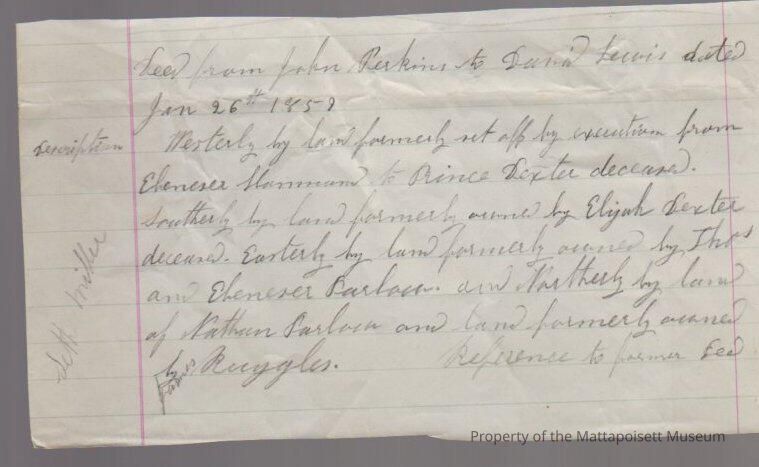 Deed from John Perkins to David Lewis dated
Jan 26th 1859
Description
Westerly by land formerly set off by execution from
Ebeneser Hammond to Prince Dexter deceased.
Southerly by land formerly owned by Elijah Dexter
deceased. Easterly by land formerly owned by Thos
and Ebeneser Barlow. and Northerly by land
of Nathan Barlow and land formerly owned
by James Ruggles. Reference to former Deed
Seth Miller
Property of the Mattapoisett Museum